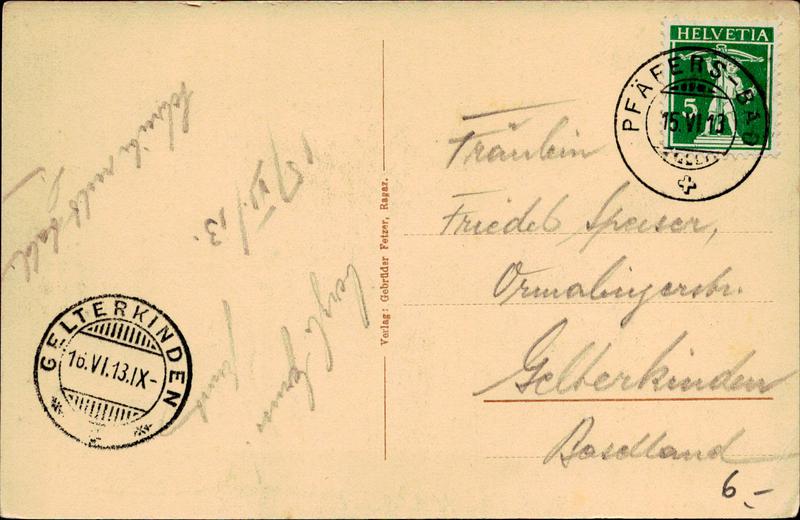 HELVETIA
5
PFÄFERS-BAD
15.VI.13
Fräulein
Friedel Speiser,
Ormalingerstr.
Gelterkinden
Baselland
6.-
Verlag: Gebrüder Fetzer, Ragaz.
15/VI/13.
bald.
GELTERKINDEN
16.VI.13.IX-